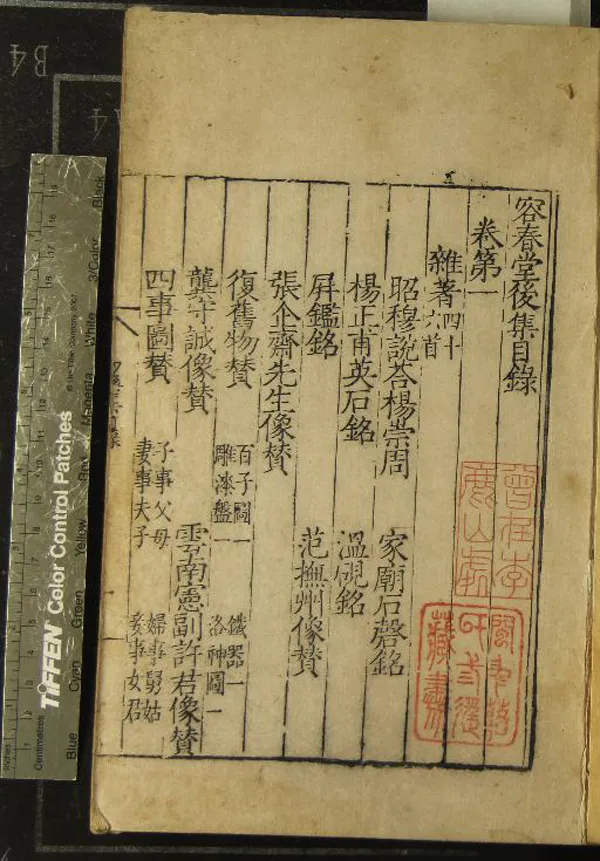 容春堂後集目錄
卷第一
雜著四十六首
昭穆說荅楊崇周 家廟石磬銘
楊正甫英石銘 溫硯銘
屏鑑銘 范撫州像贊
張企齋先生像贊
復舊物贊 百子圖一 雕漆盤一 鐵器一 洛神圖一
龔守誠像贊 雲南憲副許君像贊
四事圖贊 子事父母 妻事夫子 婦事舅姑 妾事女君
曾在李鹿山處
藏書
TIFFEN Color Control Patches
© The Tiffen Company, 2007
Inches
Centimetres
Blue
Cyan
Green
Yellow
Red
Magenta
White
3/Color
Black
B4
A4